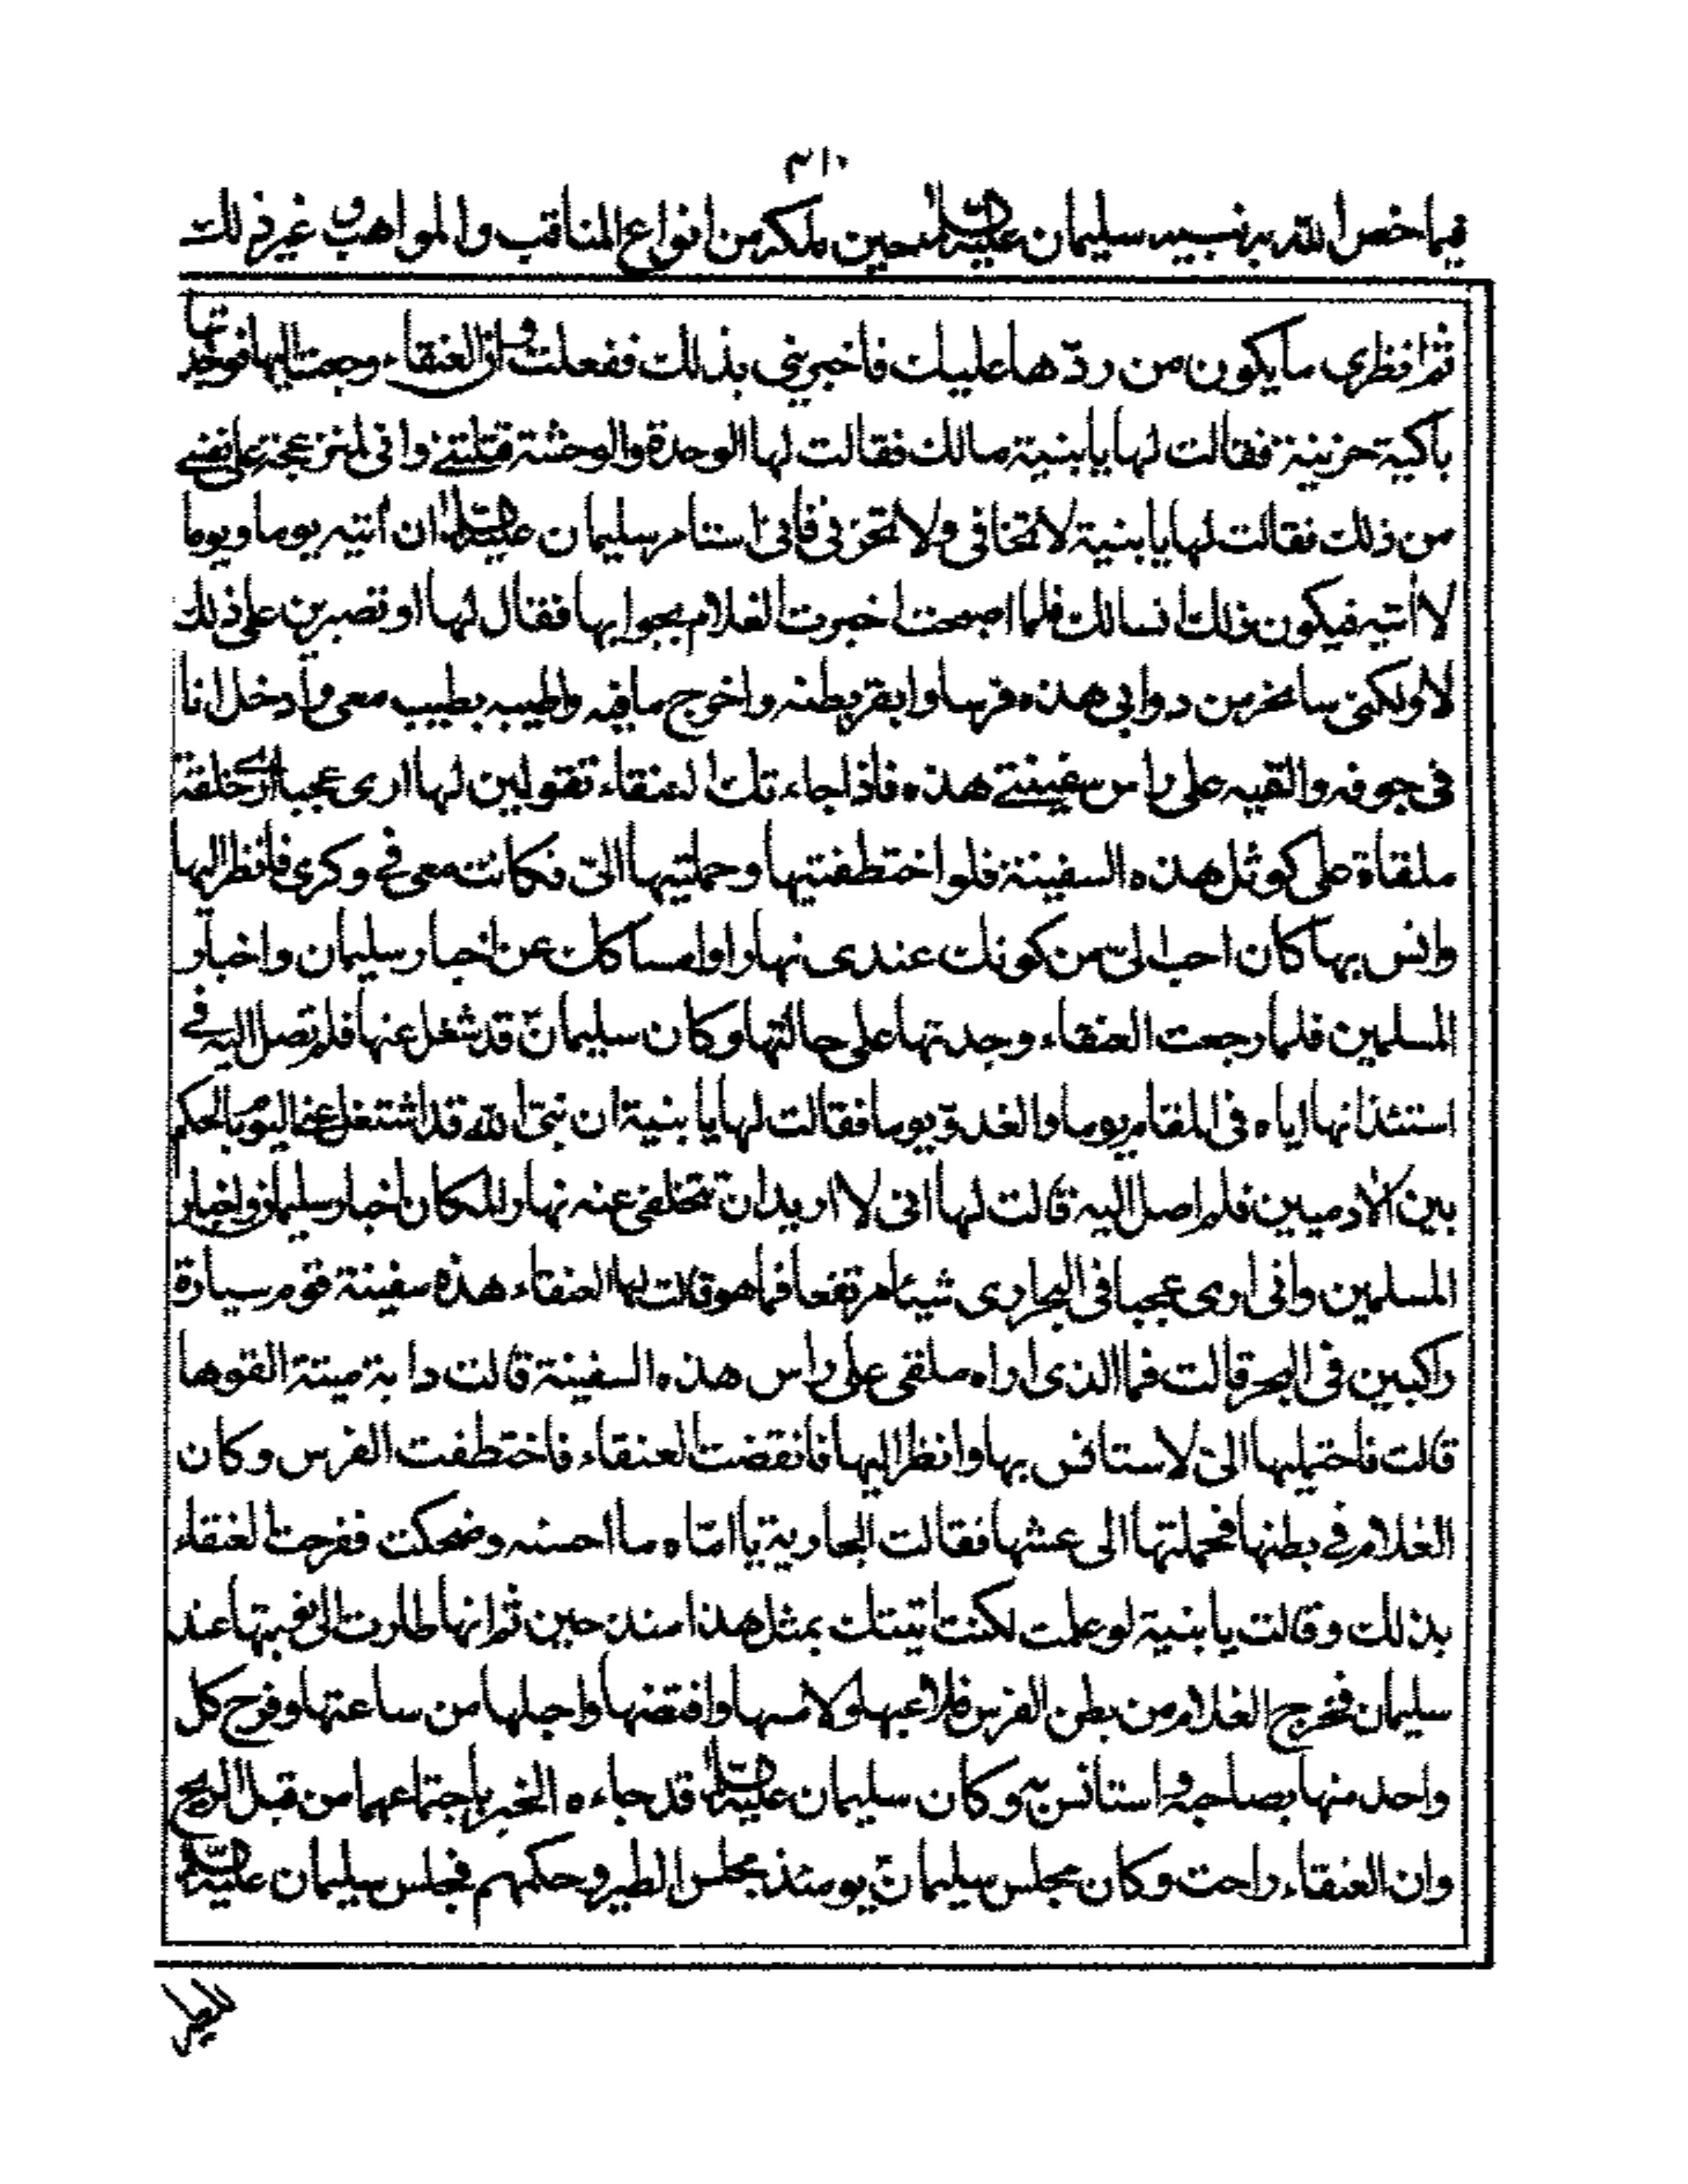 ٣١٠
فيما خص الله به نبيه سليمان عليه السلام حين ملكه من انواع المناقب والمواهب وغير ذلك
ثم انظرى ما يكون من ردّها عليك فاخبرينى بذلك ففعلت وان العنقاء رجعت اليها فوجدتها
باكية حزينة فقالت لها يا بنية مالك فقالت لها الوحدة والوحشة قتلتنى وانى لمنزعجة على نفسى
من ذلك فقالت لها يا بنية لا تخافى ولا تحزنى فانى استامر سليمان عليه السلام ان اتيه يوما ويوما
لا أتيه فيكون ذلك انسا لك فلما اصبحت اخبرت الغلام بجوابها فقال لها او تصبرين على ذلك
لا ولكنى سانحر من دوابى هذه فرسا وابقر بطنه واخرج ما فيه واطيبه بطيب معى وأدخل انا
فى جوفه والقيه على راس سفينتى هذه فاذا جاءتك العنقاء تقولين لها ارى عجبا ارى خلقة
ملقاة على كوثل هذه السفينة فلو اختطفتيها وحملتيها الىّ فكانت معى فى وكرى فانظر اليها
وانس بها كان احب الىّ من كونك عندى نهارا وامساكك عن اخبار سليمان واخبار
المسلمين فلما رجعت العنقاء وجدتها على حالتها وكان سليمانؑ قد شغل عنها فلم تصل اليه فى
استئذانها اياه فى المقام يوما والغدوّ يوما فقالت لها يا بنية ان نبىّ الله قد اشتغل عنا اليوم بالحكم
بين الآدميين فلم اصل اليه قالت لها انى لا اريد ان تتخلفى عنه نهارا لمكان اخبار سليمان واخبار
المسلمين وانى ارى عجبا فى البحر ارى شيئا مرتفعا فما هو قالت لها العنقاء هذه سفينة قوم سيارة
راكبين فى البحر قالت فما الذى اراه ملقى على راس هذه السفينة قالت دابة ميتة القوها
قالت فاحتمليها الىّ لاستانس بها وانظر اليها فانقضت العنقاء فاختطفت الفرس وكان
الغلام فى بطنها فحملتها الى عشها فقالت الجارية يا امّاه ما احسنه وضحكت ففرحت العنقاء
بذلك وقالت يا بنية لو علمت لكنت اتيتك بمثل هذا منذ حين ثم انها طارت الى نوبتها عند
سليمان فخرج الغلام من بطن الفرس فلاعبها ولامسها وافتضها واحبلها من ساعتها وفرح كل
واحد منهما بصاحبه واستانس به وكان سليمان عليه السلام قد جاءه الخبر باجتماعهما من قبل الريح
وان العنقاء راحت وكان مجلس سليمانؑ يومئذ مجلس الطير وحكمهم فجلس سليمان عليه السلام